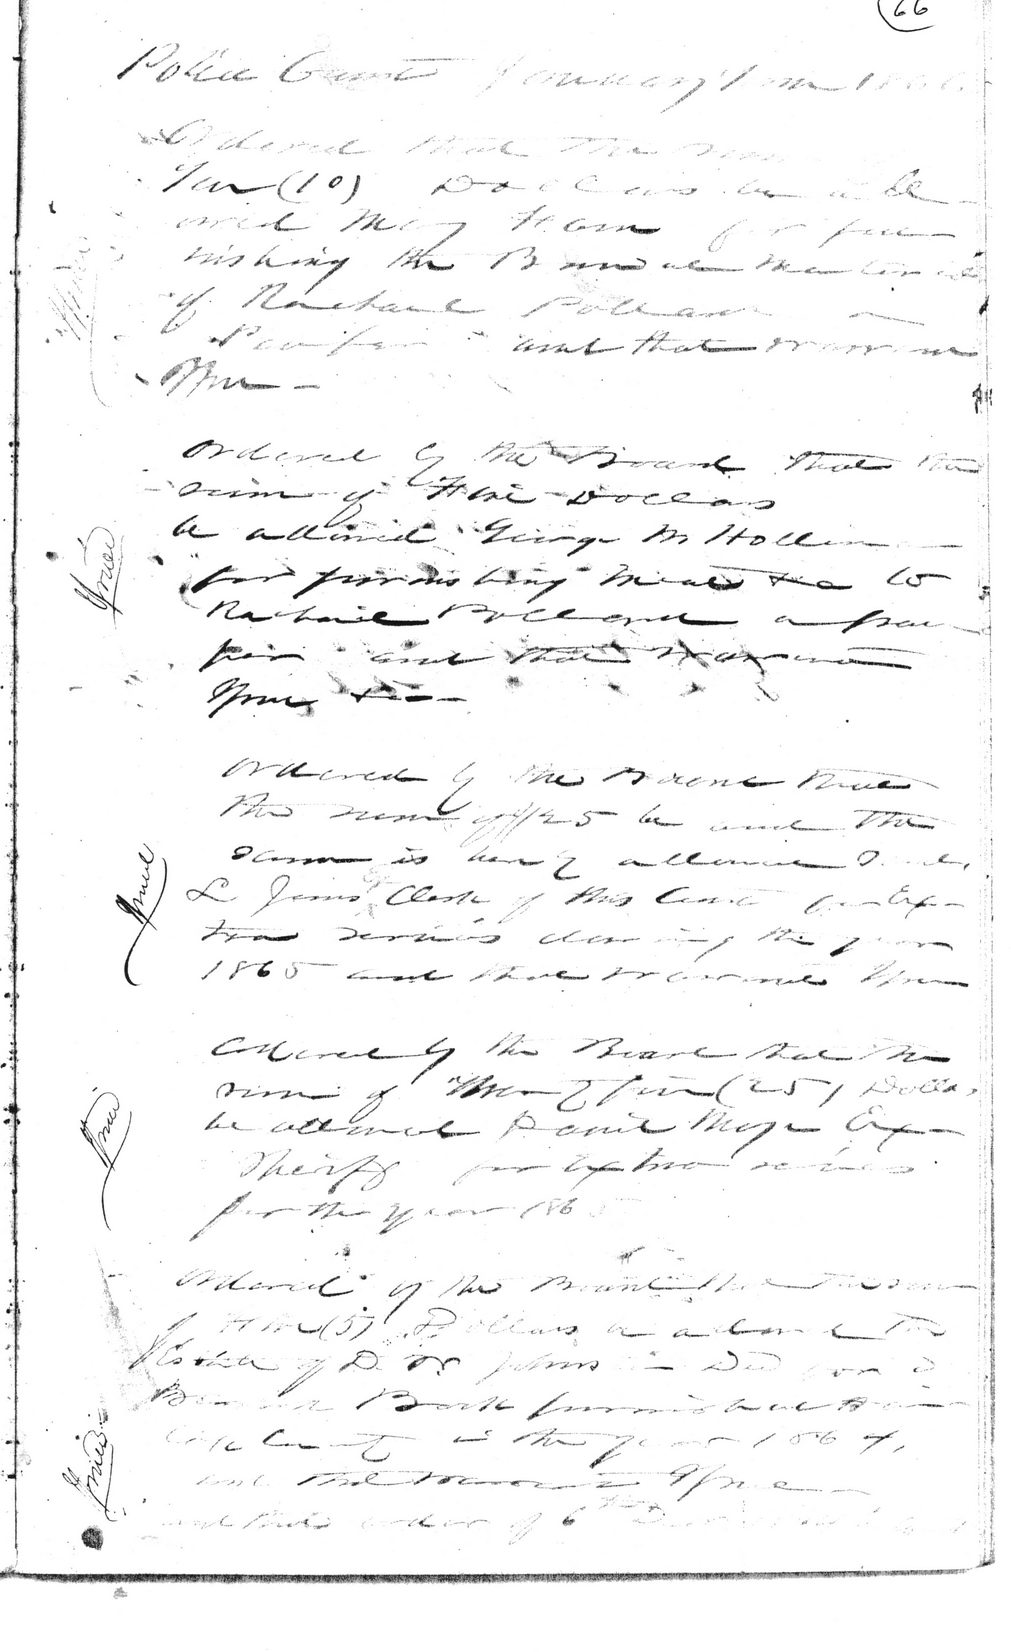 66
Police Court January Term 1866
Ordered that the sum of
Ten (10) Dollars be all-
owed May Ham for fur-
nishing the Burial Materials
of Rachael Polland a
Pauper and that warrant
Issue -
Issued
Ordered by the Board that the
sum of Five Dollars
be allowed George M Hollem
for furnishing Meal &c to
Rachael Polland a pau-
per and that warrant
Issue &c -
Issued
Ordered by the Board that
the sum of $25 be and the
same is hereby allowed
L Clerk of this Court for Ex-
tra services during the year
1865 and that warrant Issue
Issued
Ordered by the Board that the
sum of Twenty five (25) Dollars
be allowed David Mays Ex-
Sheriff for Extra services
for the year 1865
Issued
Ordered by the Board that the sum
of Five (5) Dollars be allowed the
Estate of D. W. Johnston Decd for a
Book furnished
County in the year 1864,
and that warrant Issue -
order of 6th
Issued